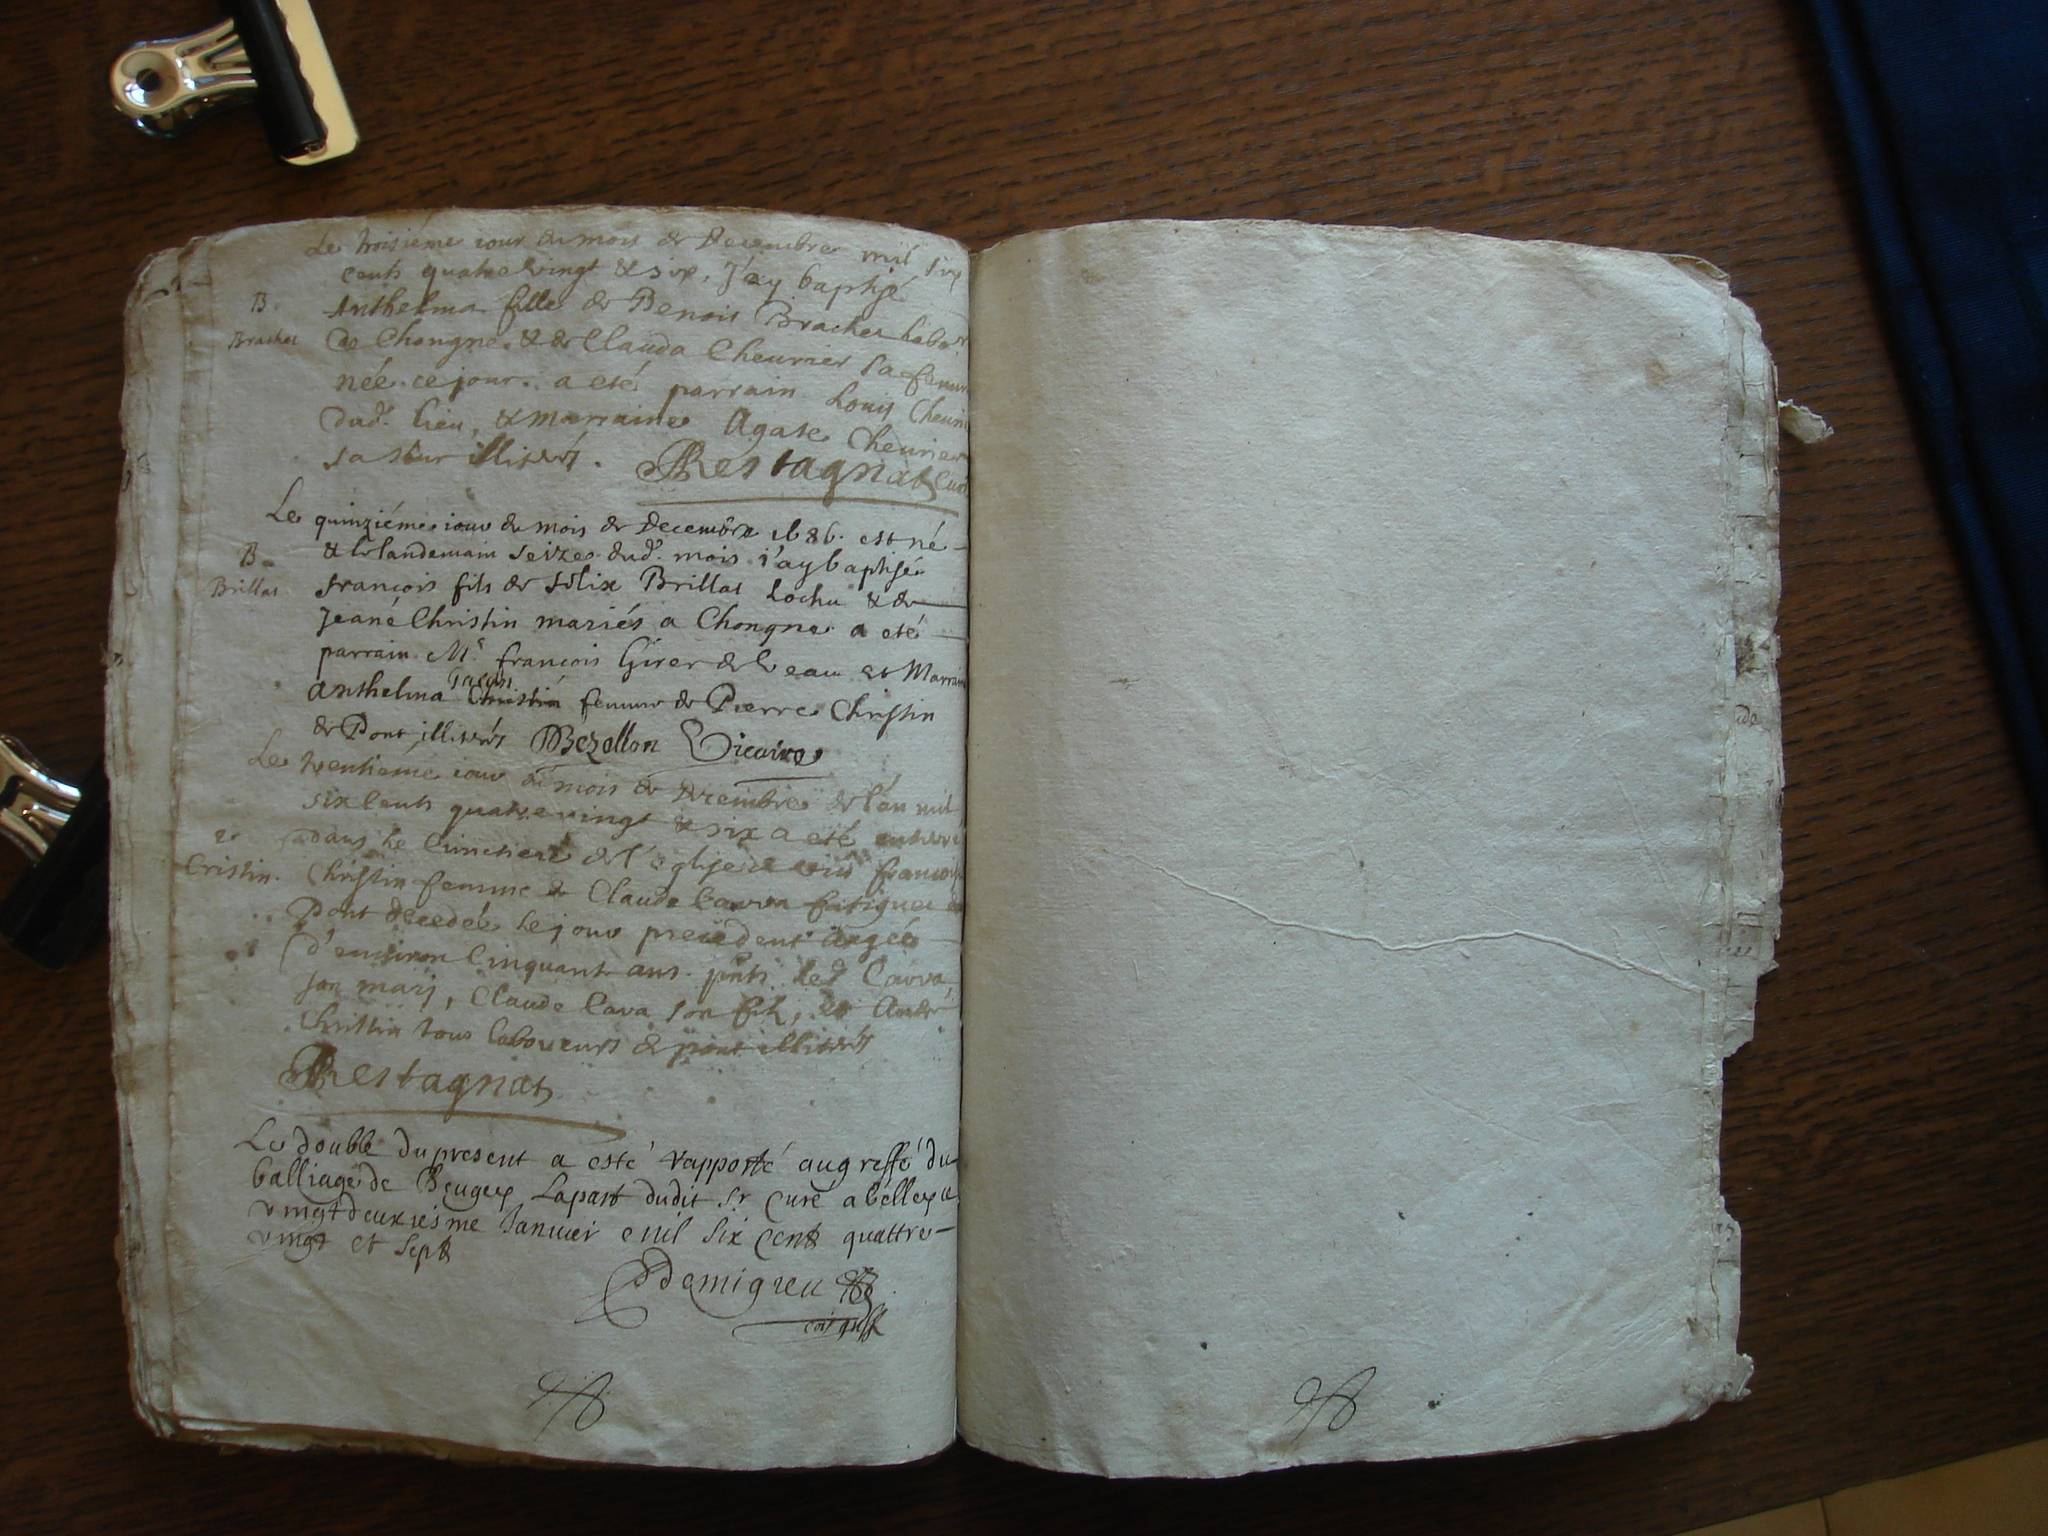 Le troisiéme iour du mois de Decembre mil six
cents quatrevingt & six, j'ay baptisé
B.
Anthelma fille de Benoit Bracher labor
Bracher
de Chongne. & de Clauda Cheurier sa femme
née ce jour. a eté parrain Louis Cheurier
dud. lieu, & marraine Agate Cheurier
sa sœur illiterés. Restagnat Curé
Le quinziéme iour du mois de decembre 1686. est né
& le landemain seize dud. mois j'ay baptisé
B.
Brillat
françois fils de félix Brillat Lochu & de
Jeane Christin mariés a Chongne a eté
parrain Mr. françois Girer de Leau et Marraine
Anthelma Christin femme de Pierre Christin
de Pont illiterés Bezollon Vicaire
Le trentieme iour du mois de decembre de l'an mil
six cents quatrevingt & six a eté enterré
dans le Cimetiere de l'eglise françoise
Cristin.
Christin femme de Claude Carra
Pont decedée le jour precedent aagée
d'environ Cinquante ans. pnts led. Carra
son mary, Claude Cara son fils, et André
Christin tous laboureurs de pont illiterés
Restagnat
Le double du present a esté rapporté au greffe du
balliage de Beugey Lapart dudit sr curé a belley le
vingtdeuxiesme Januier mil six cent quattre
vingt et sept
Demigieu